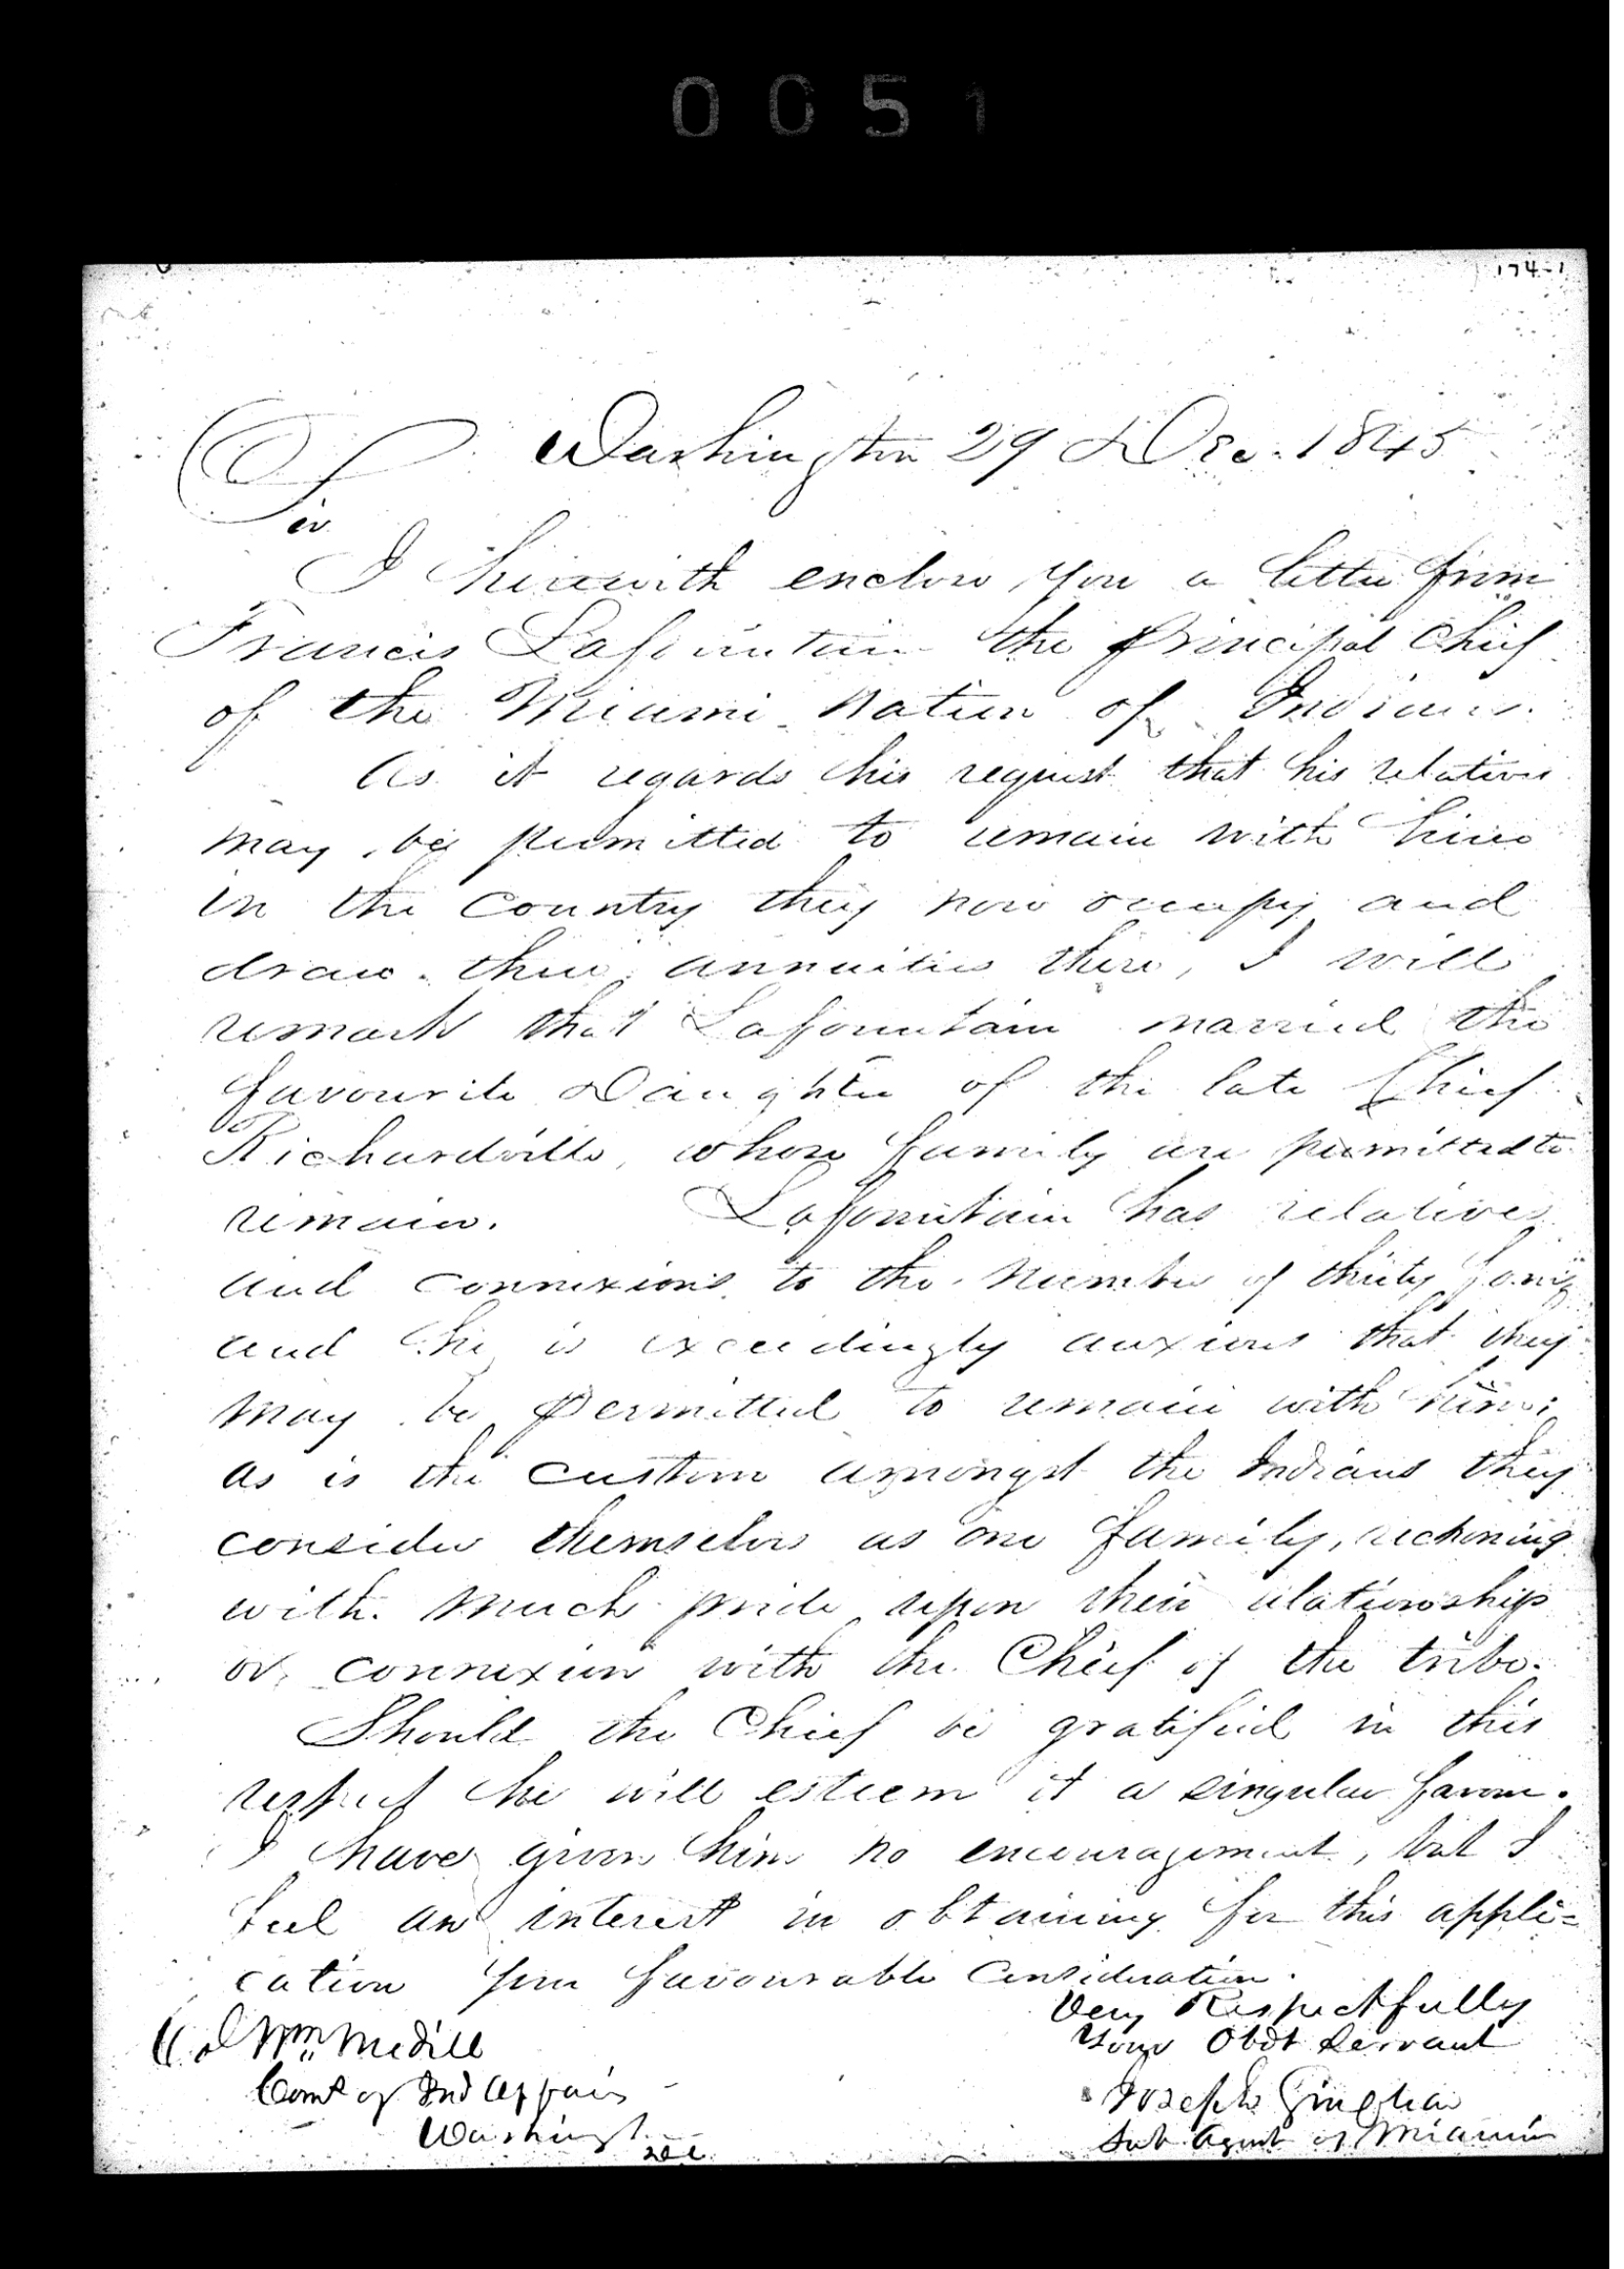 0051
174-1
Washington 29 Dec. 1845
Sir
I herewith enclose you a letter from
Francis Lafountain the principal Chief
of the Miami Nation of Indians.
As it regards his request that his relatives
may be permitted to remain with him
in the Country they now occupy and
draw their annuities there, I will
remark that Lafountain married the
favourite Daughter of the late Chief
Richardville, whose family are permitted to
remain. Lafountain has relatives
and connexions to the number of thirty
and he is exceedingly anxious that they
may be permitted to remain with him;
as is the custom amongst the Indians they
consider themselves as one family, reckoning
with much pride upon their relationship
or connexion with the Chief of the tribe.
Should the Chief be gratified in this
respect he will esteem it a singular favour.
I have given him no encouragement, but I
feel an interest in obtaining for this appli=
cation your favourable Consideration.
Very Respectfully
Your Obdt Servant
Joseph Sinclear
Sub Agent of Miamis
Col Wm Medill
Comr of Ind Affairs
Washingt